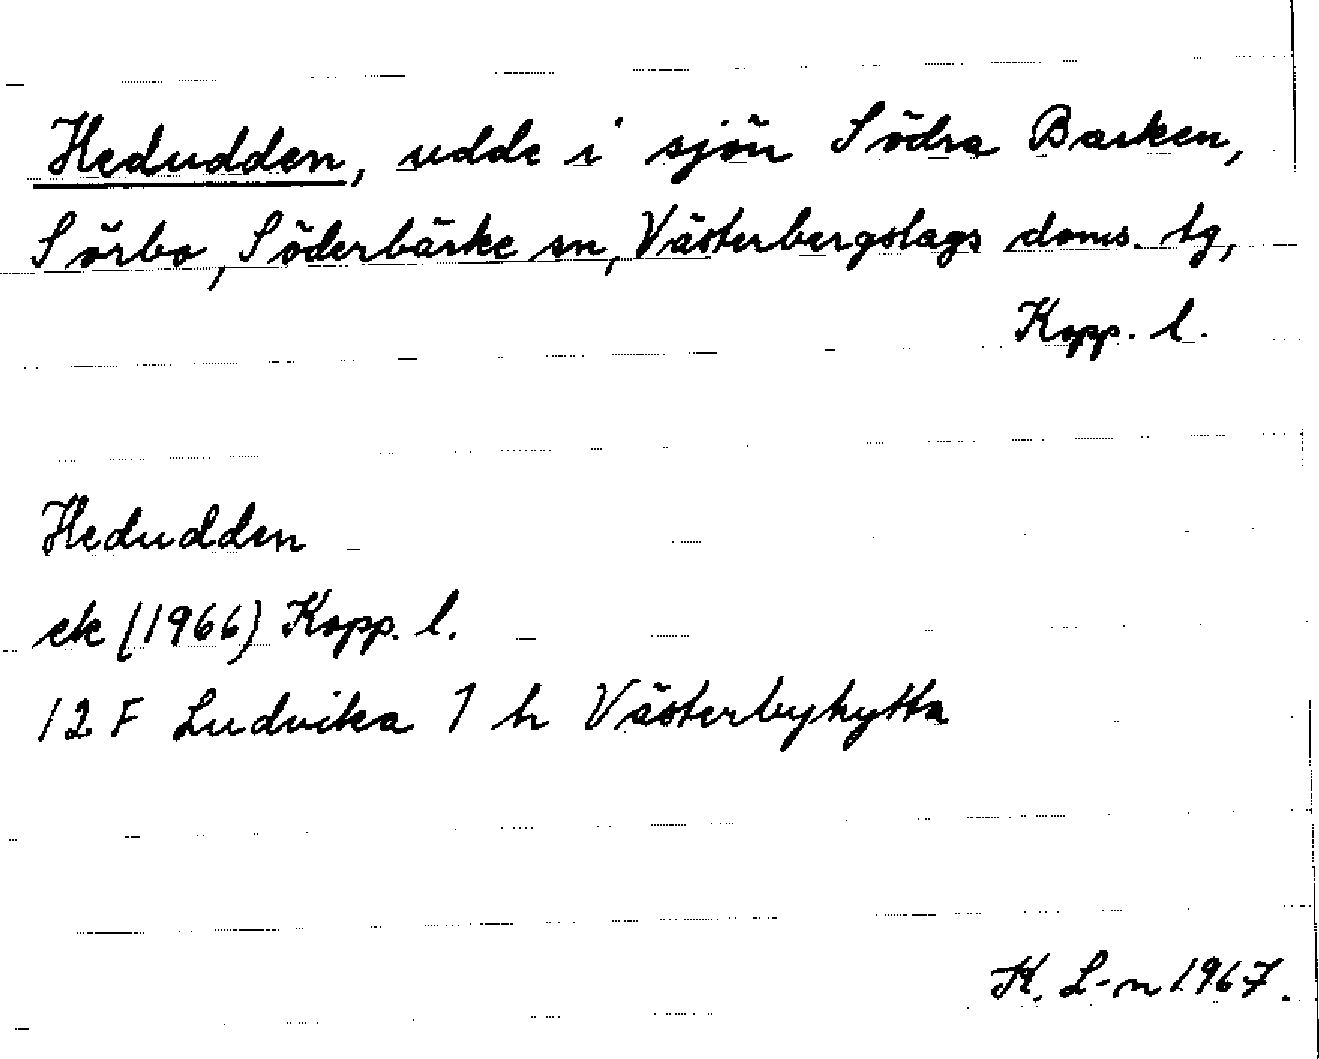 Hedudden, udde i sjön Södra Barken,
Sörbo, Söderbärke sn, Västerbergslags doms. tg,
Kopp. l.
Hedudden
ek (1966) Kopp. l.
12 F Ludvika 1 h Västerbyhytta
K. L-n 1967.